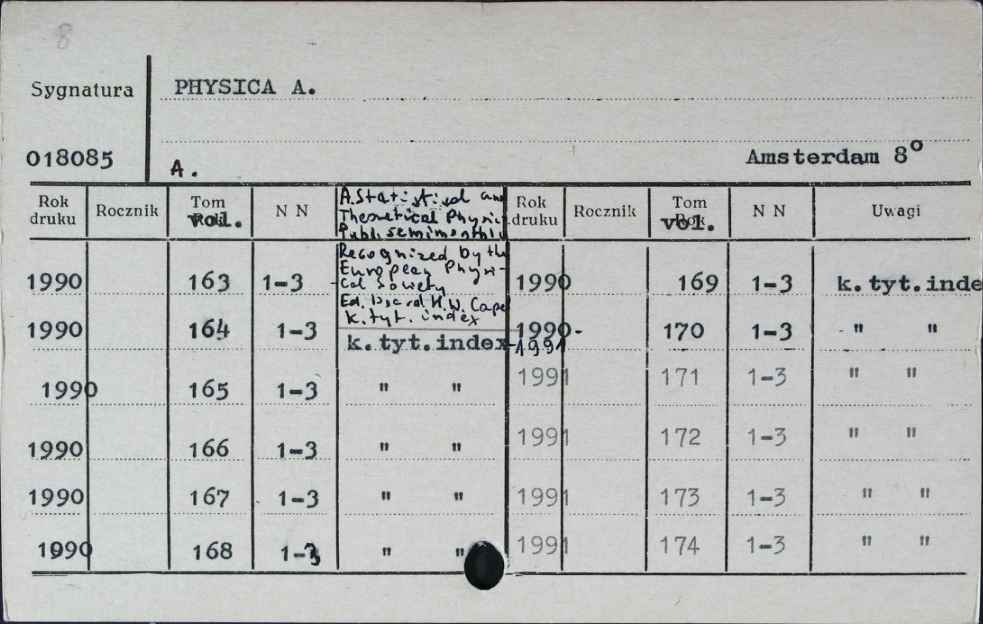 8
Sygnatura PHYSICA A.
018085 A. Amsterdam 8°
Rok druku Rocznik Tom vol. N N A Statistical and Theoretical Physics Publ. semimonthly Rok druku Rocznik Tom vol. N N Uwagi
Recognized by the
European Physi-
cal Society
Ed. H.W. Cape
k. tyt. index
1990 163 1-3 1990 169 1-3 k.tyt.inde
1990 164 1-3 k.tyt.index 1990-1991 170 1-3 " "
1990 165 1-3 " " 1991 171 1-3 " "
1990 166 1-3 " " 1991 172 1-3 " "
1990 167 1-3 " " 1991 173 1-3 " "
1990 168 1-3 " " 1991 174 1-3 " "